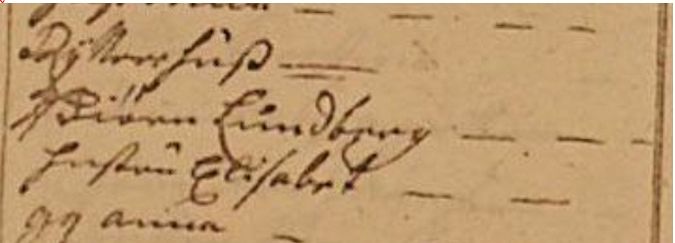 Ryttershuß
Biörn Lundberg
hustru Elisabet
anna